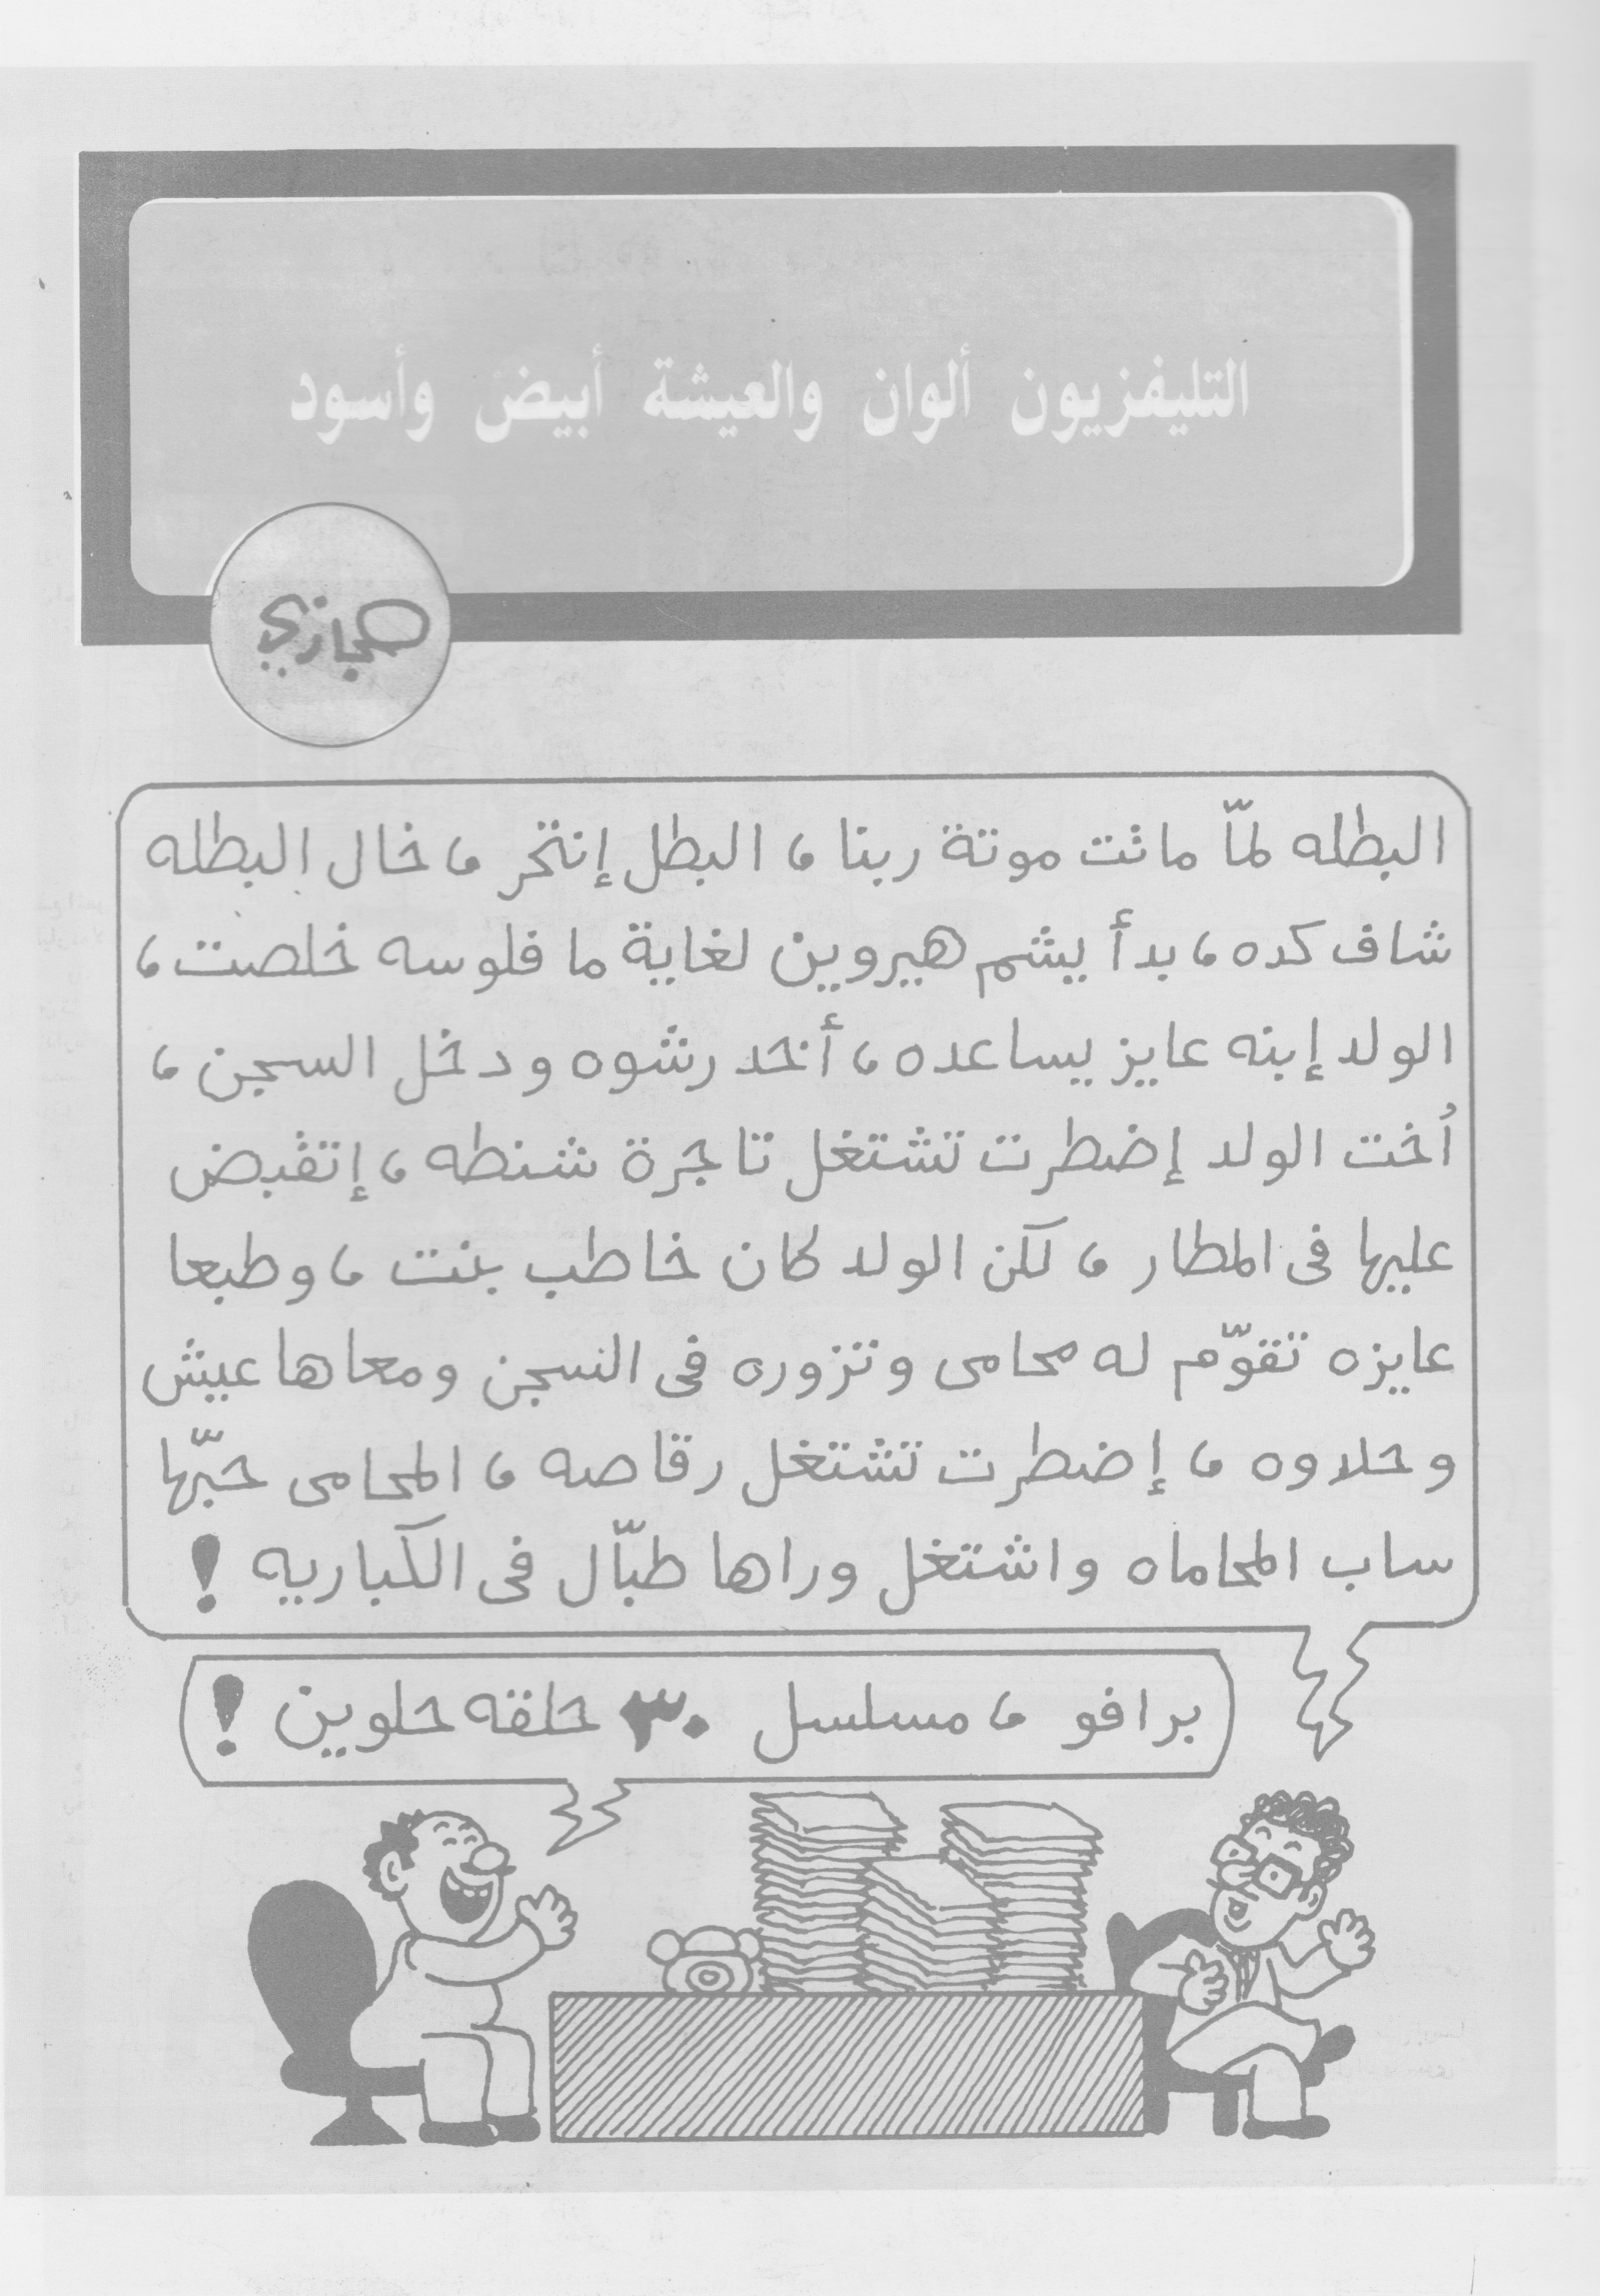 التليفزيون ألوان والعيشة أبيض وأسود
حجازي
البطله لمّا ماتت موتة ربنا ، البطل إنتحر ، خال البطله
شاف كده ، بدأ يشم هيروين لغاية ما فلوسه خلصت ،
الولد إبنه عايز يساعده ، أخد رشوه ودخل السجن ،
أُخت الولد إضطرت تشتغل تاجرة شنطه ، إتقبض
عليها فى المطار ، لكن الولد كان خاطب بنت ، وطبعا
عايزه تقوّم له محامى وتزوره فى السجن ومعاها عيش
وحلاوه ، إضطرت تشتغل رقاصه ، المحامى حبّها
ساب المحاماه واشتغل وراها طبّال فى الكباريه !
برافو ، مسلسل ٣٠ حلقه حلوين !